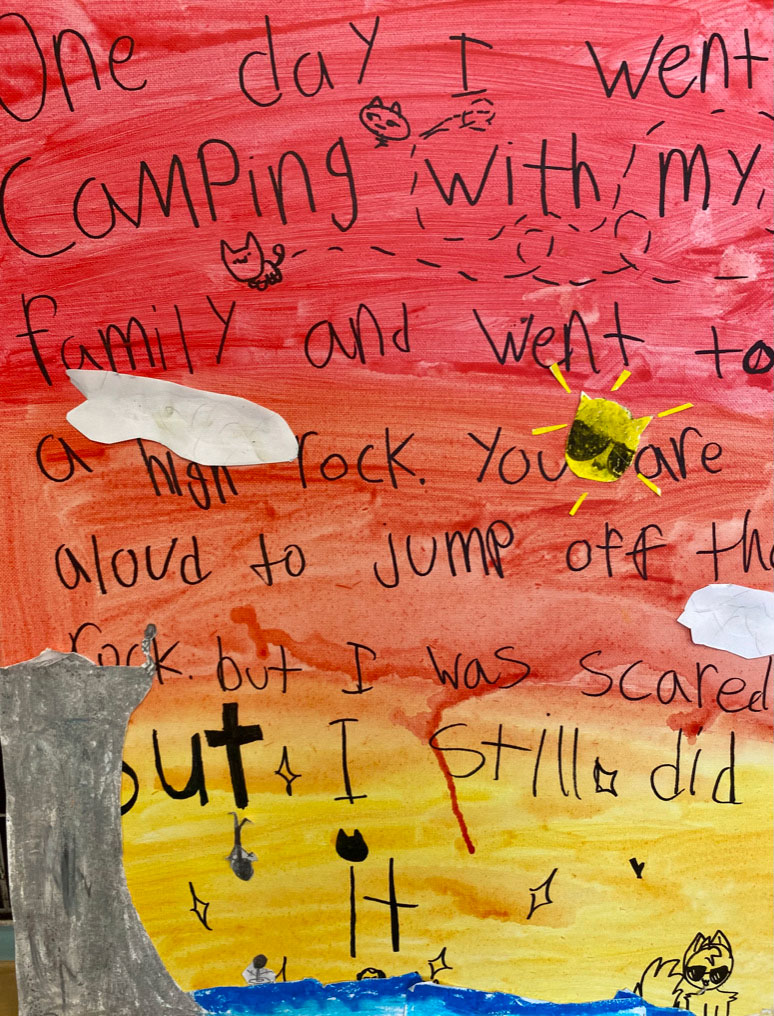 One day I went
Camping with my
family and went to
a high rock. You are
aloud to jump off the
rock. but I was scared
but I still did
It